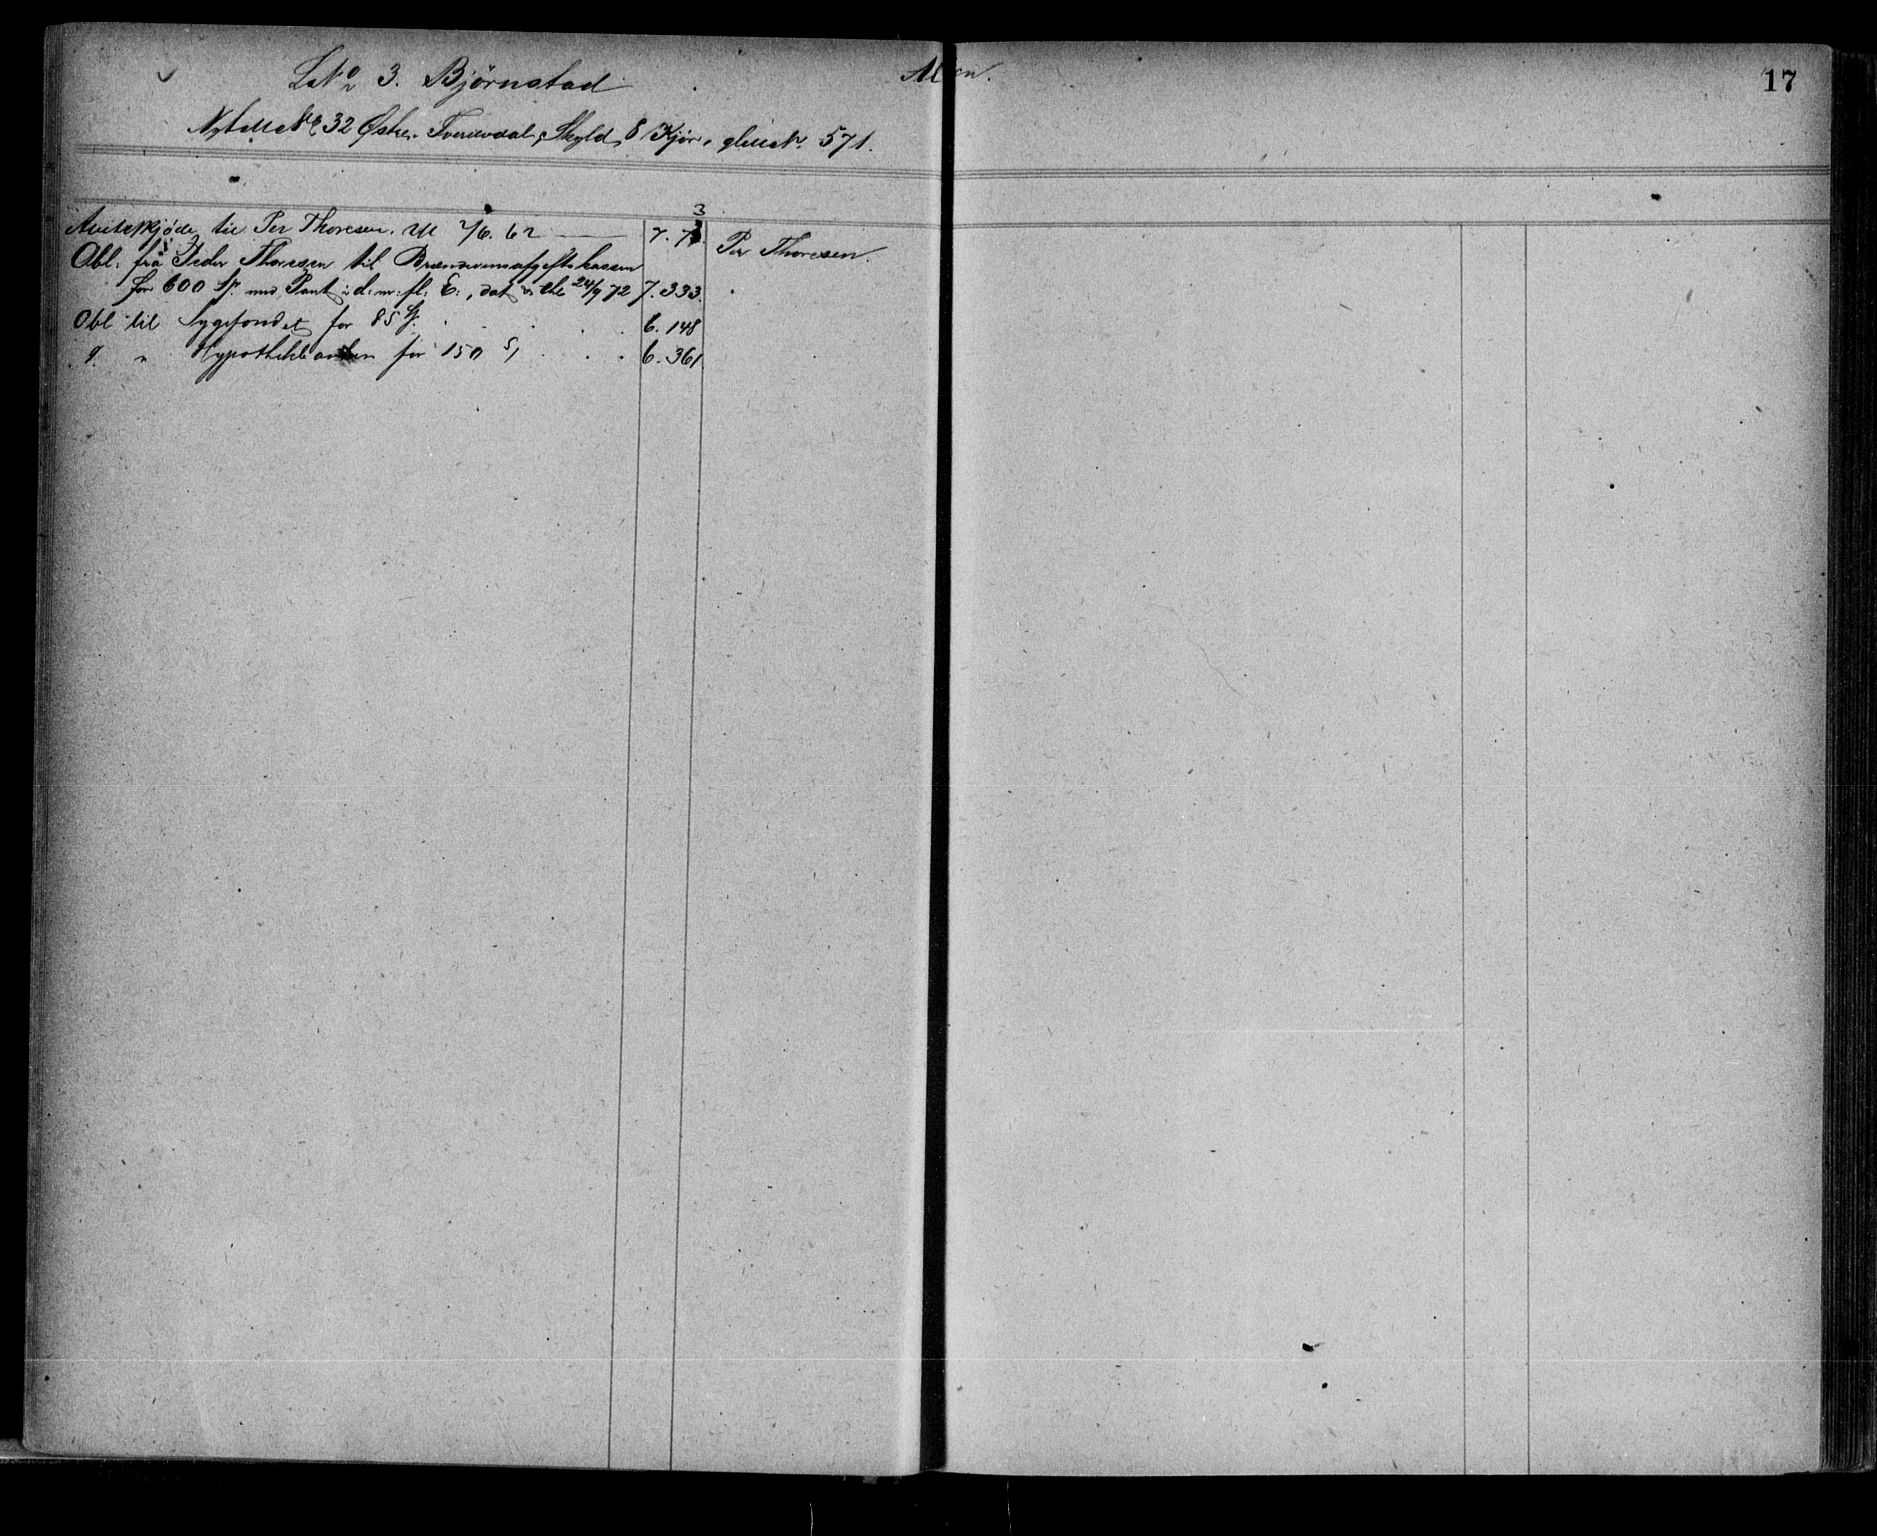 LNo 3. Bjørnstad
Alen.
17
Nyt M No 32 Østre Tverevdal, Skyld 8 Kjør, gl. M. Nr. 571.
Auctskjøde til Per Thoresen. M 2/6. 62 7. 73.
Per Thoresen.
Obl. frå Peder Thoresen til Brændevinsafgiftskassen
for 600 Sp. med Pant i d. m. fl. E., dat & thl 24/9 72 7. 333.
Obl til Sygefondet for 85 Sp. 6. 148
" " Hypothekbanken for 150 Sp 6. 361